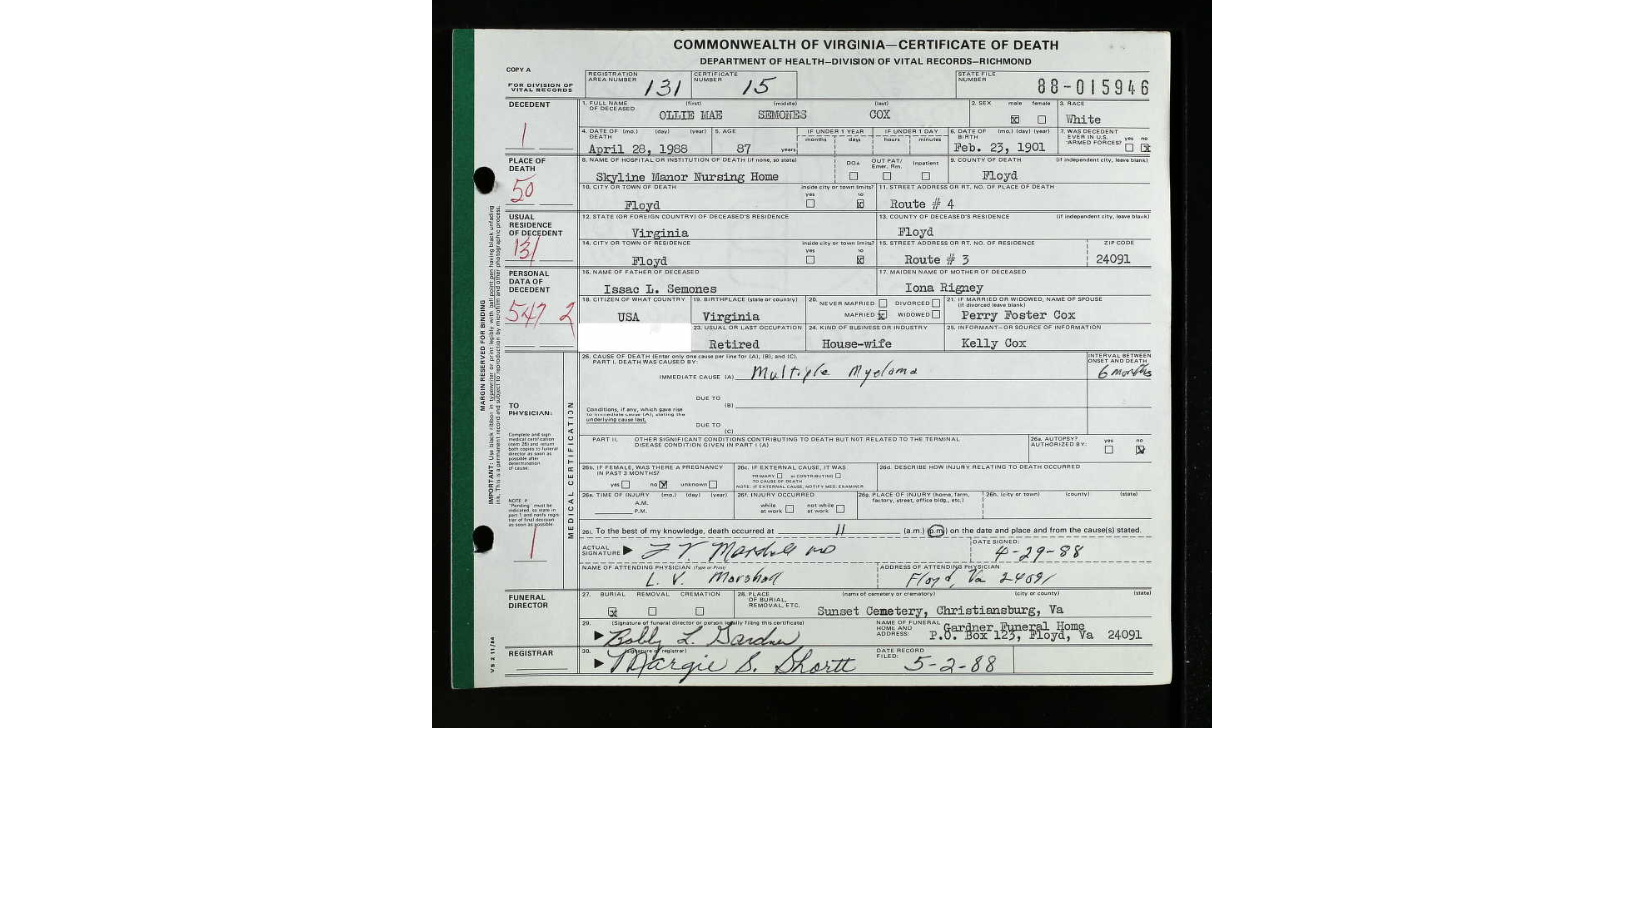 COMMONWEALTH OF VIRGINIA—CERTIFICATE OF DEATH
DEPARTMENT OF HEALTH—DIVISION OF VITAL RECORDS—RICHMOND
COPY A
FOR DIVISION OF VITAL RECORDS
REGISTRATION AREA NUMBER 131
CERTIFICATE NUMBER 15
STATE FILE NUMBER 88-015946
DECEDENT
1
1. FULL NAME OF DECEASED (first) (middle) (last)
OLLIE MAE SEMONES COX
2. SEX male female
3. RACE
White
4. DATE OF DEATH (mo.) (day) (year)
April 28, 1988
5. AGE
87 years
IF UNDER 1 YEAR months days
IF UNDER 1 DAY hours minutes
6. DATE OF BIRTH (mo.) (day) (year)
Feb. 23, 1901
7. WAS DECEDENT EVER IN U.S. ARMED FORCES? yes no
PLACE OF DEATH
50
8. NAME OF HOSPITAL OR INSTITUTION OF DEATH (if none, so state)
Skyline Manor Nursing Home
DOA OUT PAT/ Emer. Rm. Inpatient
9. COUNTY OF DEATH (if independent city, leave blank)
Floyd
10. CITY OR TOWN OF DEATH
Floyd
inside city or town limits? yes no
11. STREET ADDRESS OR RT. NO. OF PLACE OF DEATH
Route # 4
USUAL RESIDENCE OF DECEDENT
131
12. STATE (OR FOREIGN COUNTRY) OF DECEASED'S RESIDENCE
Virginia
13. COUNTY OF DECEASED'S RESIDENCE (if independent city, leave blank)
Floyd
14. CITY OR TOWN OF RESIDENCE
Floyd
inside city or town limits? yes no
15. STREET ADDRESS OR RT. NO. OF RESIDENCE
Route # 3
ZIP CODE
24091
PERSONAL DATA OF DECEDENT
547 2
16. NAME OF FATHER OF DECEASED
Issac L. Semones
17. MAIDEN NAME OF MOTHER OF DECEASED
Iona Rigney
18. CITIZEN OF WHAT COUNTRY
USA
19. BIRTHPLACE (state or country)
Virginia
20. NEVER MARRIED DIVORCED
MARRIED WIDOWED
21. IF MARRIED OR WIDOWED, NAME OF SPOUSE (if divorced leave blank)
Perry Foster Cox
23. USUAL OR LAST OCCUPATION
Retired
24. KIND OF BUSINESS OR INDUSTRY
House-wife
25. INFORMANT—OR SOURCE OF INFORMATION
Kelly Cox
MARGIN RESERVED FOR BINDING
TO PHYSICIAN:
Complete and sign medical certification (item 26) and return both copies to funeral director as soon as possible after determination of cause.
1
MEDICAL CERTIFICATION
26. CAUSE OF DEATH (Enter only one cause per line for (A), (B), and (C).
PART I. DEATH WAS CAUSED BY:
IMMEDIATE CAUSE (A) Multiple Myeloma
INTERVAL BETWEEN ONSET AND DEATH
6 months
DUE TO (B)
Conditions, if any, which gave rise to immediate cause (A), stating the underlying cause last.
DUE TO (C)
PART II. OTHER SIGNIFICANT CONDITIONS CONTRIBUTING TO DEATH BUT NOT RELATED TO THE TERMINAL DISEASE CONDITION GIVEN IN PART I (A)
26a. AUTOPSY? AUTHORIZED BY: yes no
26b. IF FEMALE, WAS THERE A PREGNANCY IN PAST 3 MONTHS?
yes no unknown
26c. IF EXTERNAL CAUSE, IT WAS
PRIMARY or CONTRIBUTING TO CAUSE OF DEATH
NOTE: IF EXTERNAL CAUSE, NOTIFY MED. EXAMINER
26d. DESCRIBE HOW INJURY RELATING TO DEATH OCCURRED
26e. TIME OF INJURY (mo.) (day) (year)
A.M.
P.M.
26f. INJURY OCCURRED
while at work not while at work
26g. PLACE OF INJURY (home, farm, factory, street, office bldg., etc.)
26h. (city or town) (county) (state)
26i. To the best of my knowledge, death occurred at 11 (a.m.) (p.m.) on the date and place and from the cause(s) stated.
ACTUAL SIGNATURE L V. Marshall MD
DATE SIGNED:
4-29-88
NAME OF ATTENDING PHYSICIAN (Type or Print)
L. V. Marshall
ADDRESS OF ATTENDING PHYSICIAN
Floyd, Va 24091
FUNERAL DIRECTOR
27. BURIAL REMOVAL CREMATION
28. PLACE OF BURIAL, REMOVAL, ETC. (name of cemetery or crematory) (city or county) (state)
Sunset Cemetery, Christiansburg, Va
29. (Signature of funeral director or person legally filing this certificate)
Bobby L. Gardner
NAME OF FUNERAL HOME AND ADDRESS:
Gardner Funeral Home
P.O. Box 123, Floyd, Va 24091
REGISTRAR
30. (signature of registrar)
Margie S. Shortt
DATE RECORD FILED:
5-2-88
VS 2 11/84